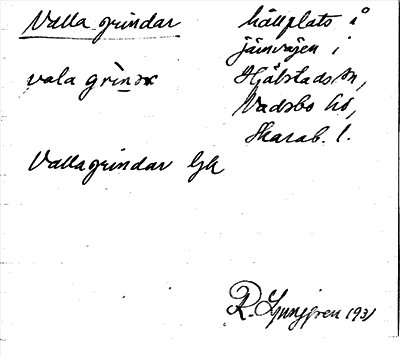 Valla grindar
hållplats å
järnvägen i
Hjälstads sn,
Vadsbo hd,
Skarab. l.
vala grìnər
Vallagrindar Gk
R. Ljunggren 1931